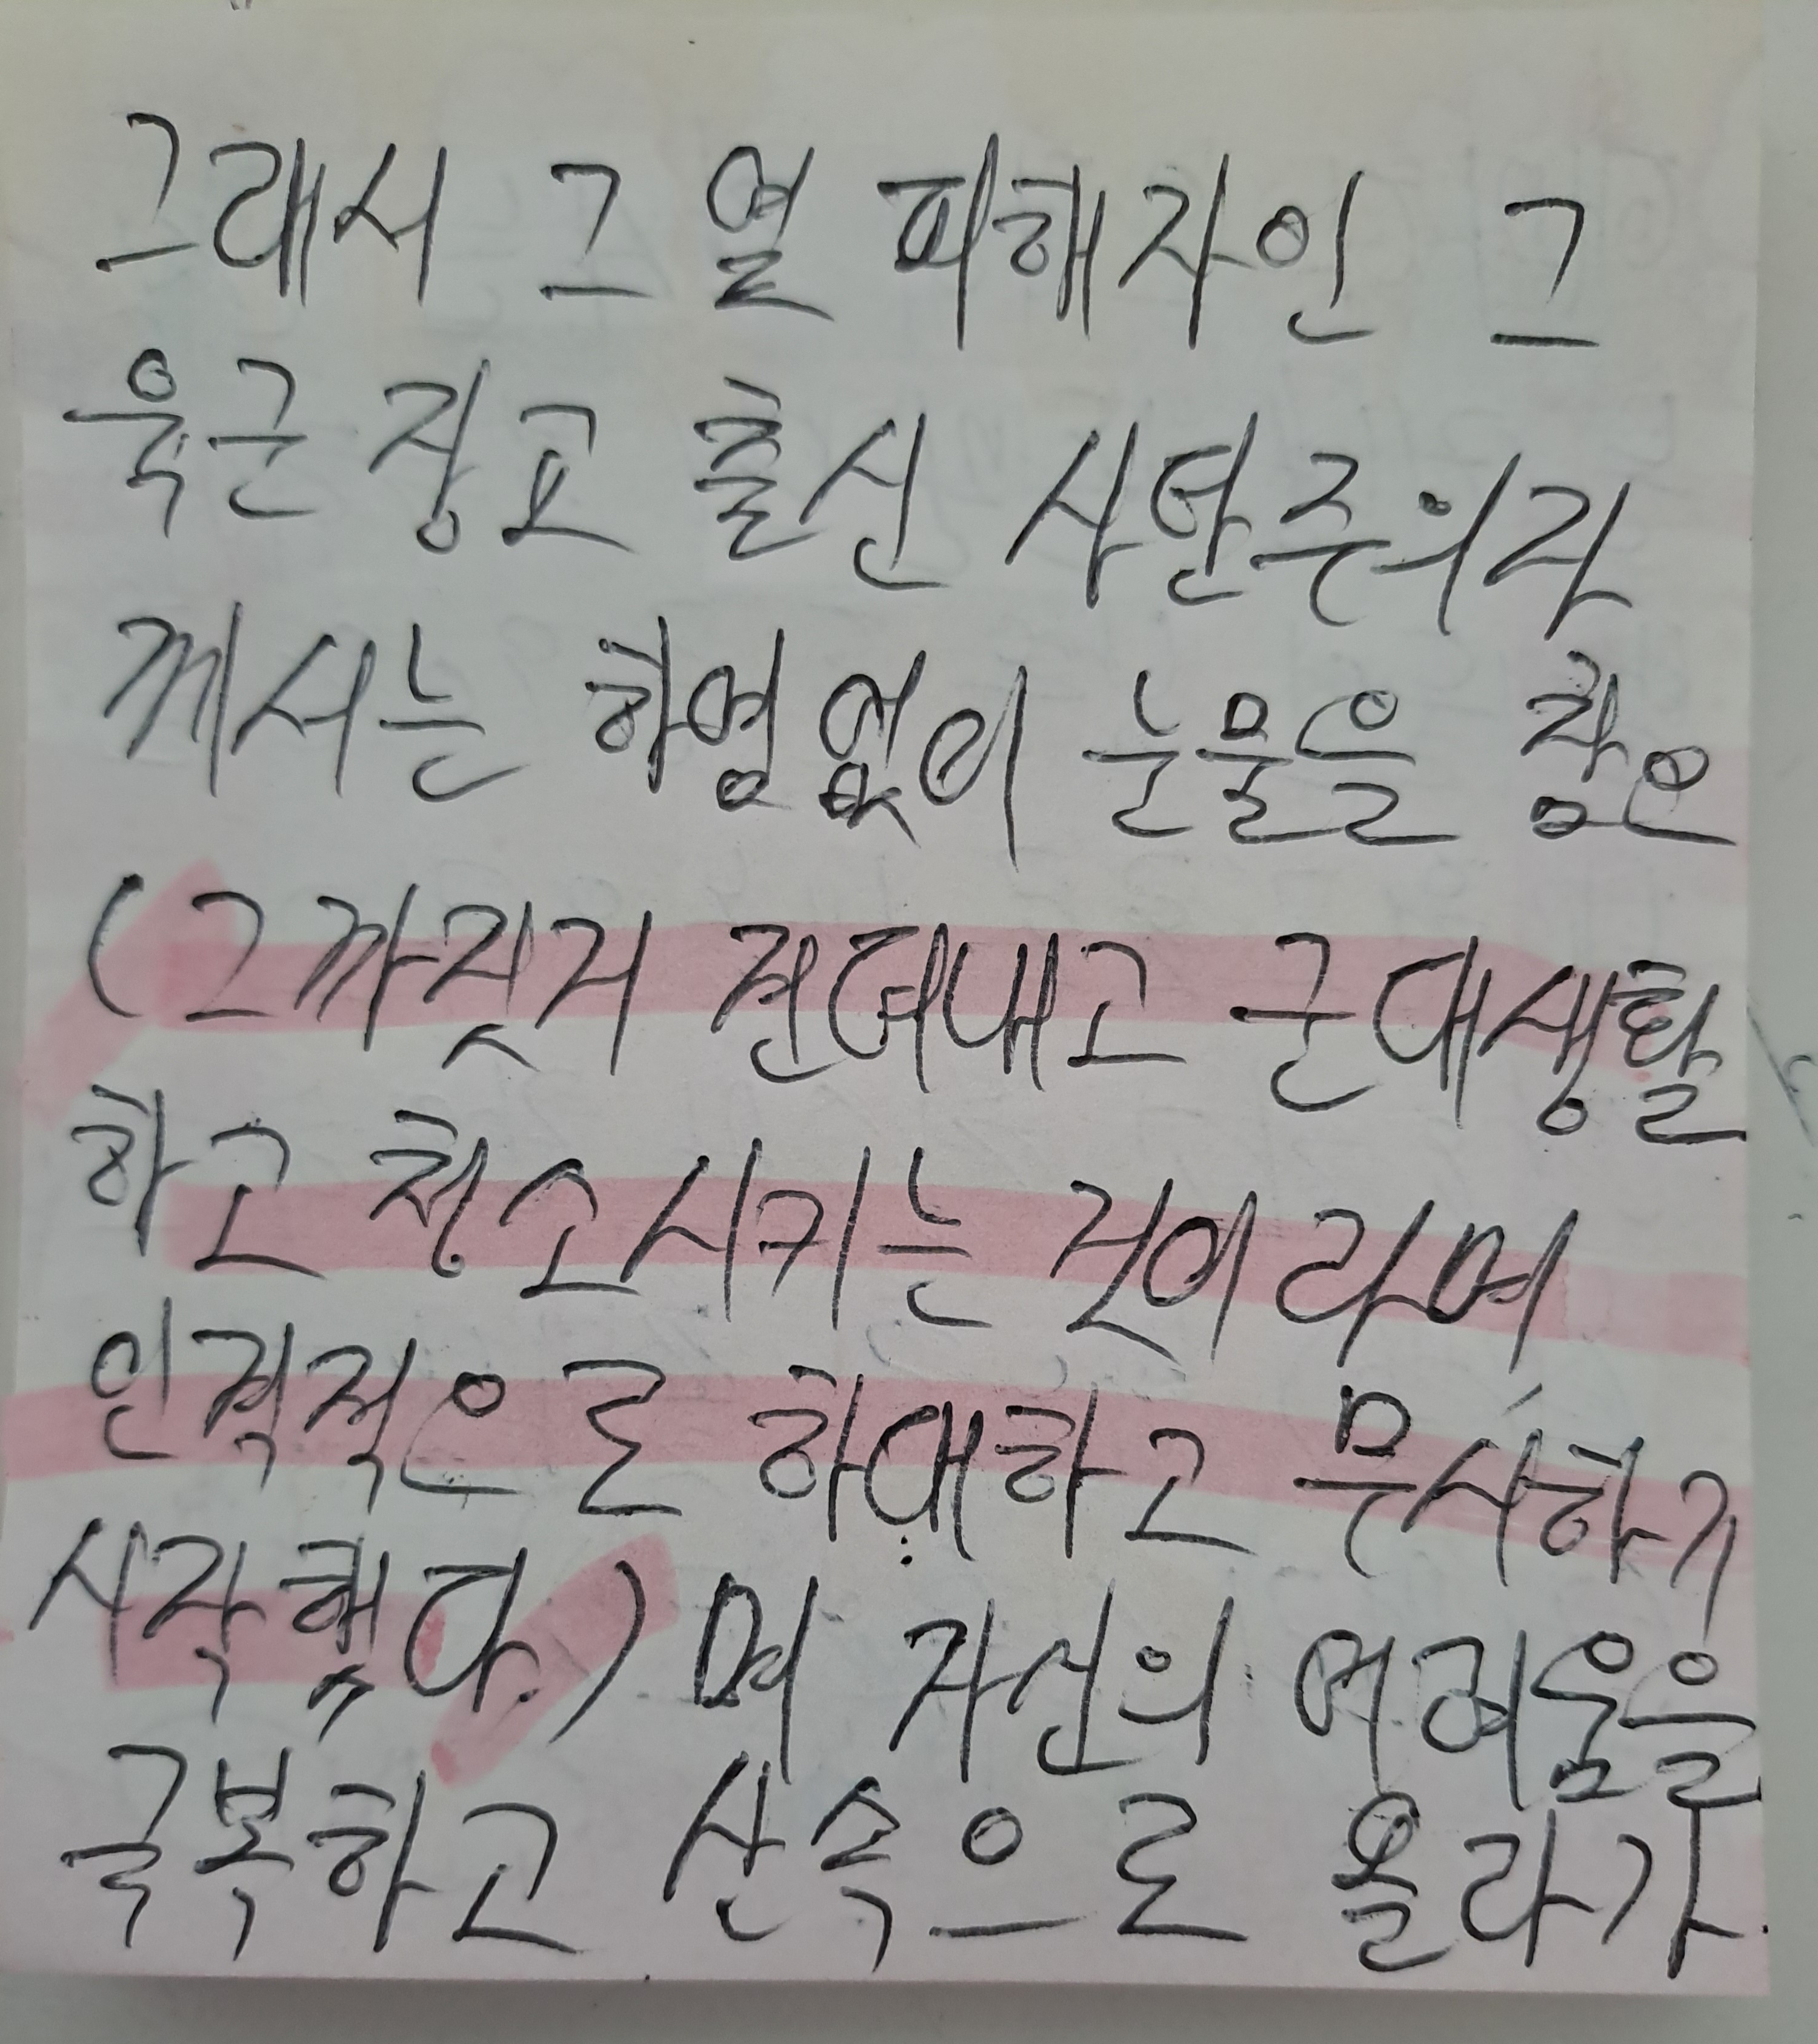 그래서 그 열 피해자인 그
육근 장교 출신 사단주의자
께서는 하염없이 눈물을 참은
(그까짓거 견뎌내고 군대생활
하고 청소시키는 것이라며
인격적으로 하대하고 무시하기
시작했다.) 며 자신의 어려움을
극복하고 산속으로 올라가